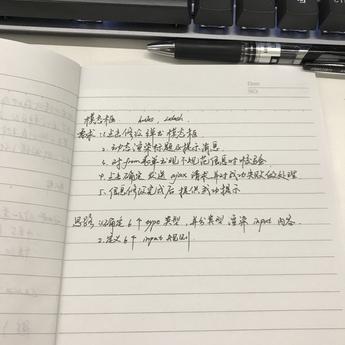 模态框
需求：1.点击修改弹出模态框
2.动态渲染标题与提示消息
3.对form表单出现不规范信息时校验
4.点击确定发送ajax请求并对成功失败做处理
5.信息修改完成后提供成功提示
思路：1.确定6个type类型，并分类型渲染input内容.
2.定义6个input规则